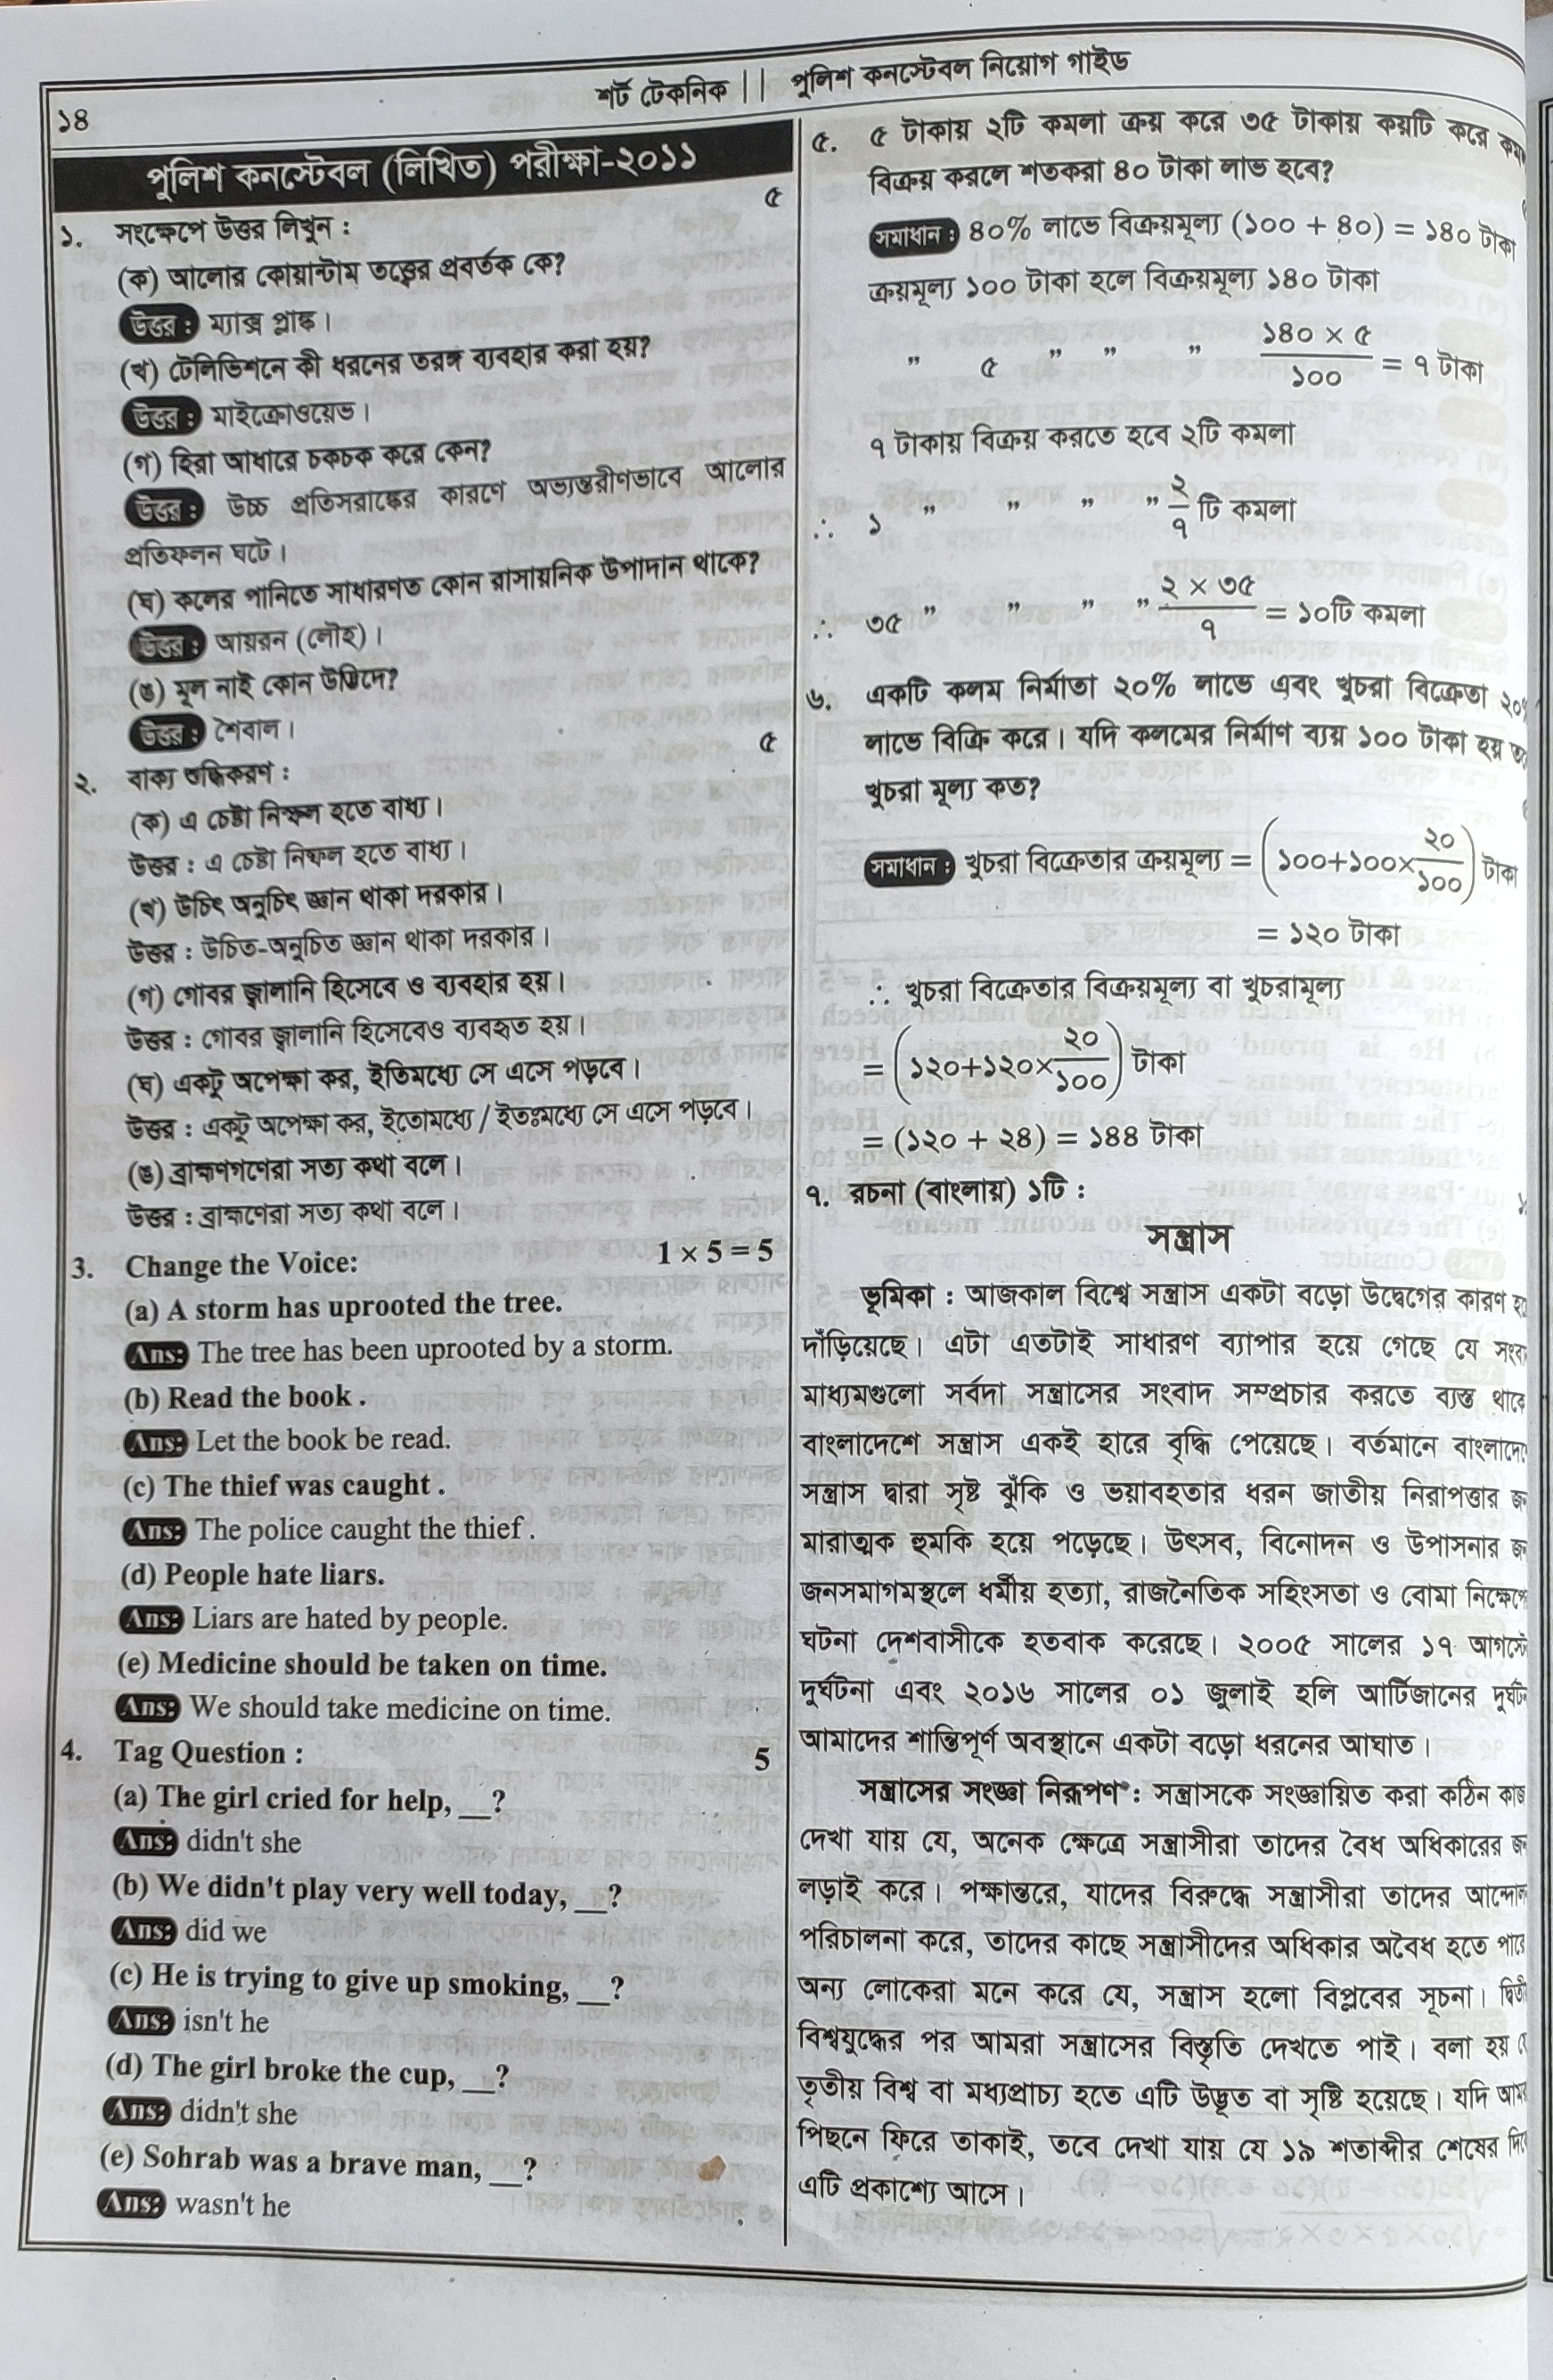 শর্ট টেকনিক || পুলিশ কনস্টেবল নিয়োগ গাইড
১৪
পুলিশ কনস্টেবল (লিখিত) পরীক্ষা-২০১১
১. সংক্ষেপে উত্তর লিখুন : ৫
(ক) আলোর কোয়ান্টাম তত্ত্বের প্রবর্তক কে?
উত্তর : ম্যাক্স প্লাঙ্ক।
(খ) টেলিভিশনে কী ধরনের তরঙ্গ ব্যবহার করা হয়?
উত্তর : মাইক্রোওয়েভ।
(গ) হিরা আধারে চকচক করে কেন?
উত্তর : উচ্চ প্রতিসরাঙ্কের কারণে অভ্যন্তরীণভাবে আলোর
প্রতিফলন ঘটে।
(ঘ) কলের পানিতে সাধারণত কোন রাসায়নিক উপাদান থাকে?
উত্তর : আয়রন (লৌহ)।
(ঙ) মূল নাই কোন উদ্ভিদে?
উত্তর : শৈবাল।
২. বাক্য শুদ্ধিকরণ : ৫
(ক) এ চেষ্টা নিস্ফল হতে বাধ্য।
উত্তর : এ চেষ্টা নিষ্ফল হতে বাধ্য।
(খ) উচিৎ অনুচিৎ জ্ঞান থাকা দরকার।
উত্তর : উচিত-অনুচিত জ্ঞান থাকা দরকার।
(গ) গোবর জ্বালানি হিসেবে ও ব্যবহার হয়।
উত্তর : গোবর জ্বালানি হিসেবেও ব্যবহৃত হয়।
(ঘ) একটু অপেক্ষা কর, ইতিমধ্যে সে এসে পড়বে।
উত্তর : একটু অপেক্ষা কর, ইতোমধ্যে / ইতঃমধ্যে সে এসে পড়বে।
(ঙ) ব্রাহ্মণগণেরা সত্য কথা বলে।
উত্তর : ব্রাহ্মণেরা সত্য কথা বলে।
3. Change the Voice: 1 × 5 = 5
(a) A storm has uprooted the tree.
Ans: The tree has been uprooted by a storm.
(b) Read the book .
Ans: Let the book be read.
(c) The thief was caught .
Ans: The police caught the thief .
(d) People hate liars.
Ans: Liars are hated by people.
(e) Medicine should be taken on time.
Ans: We should take medicine on time.
4. Tag Question : 5
(a) The girl cried for help, __?
Ans: didn't she
(b) We didn't play very well today, __?
Ans: did we
(c) He is trying to give up smoking, __?
Ans: isn't he
(d) The girl broke the cup, __?
Ans: didn't she
(e) Sohrab was a brave man, __?
Ans: wasn't he
৫. ৫ টাকায় ২টি কমলা ক্রয় করে ৩৫ টাকায় কয়টি করে
বিক্রয় করলে শতকরা ৪০ টাকা লাভ হবে?
সমাধান : ৪০% লাভে বিক্রয়মূল্য (১০০ + ৪০) = ১৪০ টাকা
ক্রয়মূল্য ১০০ টাকা হলে বিক্রয়মূল্য ১৪০ টাকা
" ৫ " " " ১৪০ × ৫ / ১০০ = ৭ টাকা
৭ টাকায় বিক্রয় করতে হবে ২টি কমলা
∴ ১ " " " " ২/৭ টি কমলা
∴ ৩৫ " " " " ২ × ৩৫ / ৭ = ১০টি কমলা
৬. একটি কলম নির্মাতা ২০% লাভে এবং খুচরা বিক্রেতা ২০%
লাভে বিক্রি করে। যদি কলমের নির্মাণ ব্যয় ১০০ টাকা হয়
খুচরা মূল্য কত?
সমাধান : খুচরা বিক্রেতার ক্রয়মূল্য = (১০০+১০০×২০/১০০) টাকা
= ১২০ টাকা
∴ খুচরা বিক্রেতার বিক্রয়মূল্য বা খুচরামূল্য
= (১২০+১২০×২০/১০০) টাকা
= (১২০ + ২৪) = ১৪৪ টাকা
৭. রচনা (বাংলায়) ১টি :
সন্ত্রাস
ভূমিকা : আজকাল বিশ্বে সন্ত্রাস একটা বড়ো উদ্বেগের কারণ
দাঁড়িয়েছে। এটা এতটাই সাধারণ ব্যাপার হয়ে গেছে যে
মাধ্যমগুলো সর্বদা সন্ত্রাসের সংবাদ সম্প্রচার করতে ব্যস্ত থাকে
বাংলাদেশে সন্ত্রাস একই হারে বৃদ্ধি পেয়েছে। বর্তমানে
সন্ত্রাস দ্বারা সৃষ্ট ঝুঁকি ও ভয়াবহতার ধরন জাতীয় নিরাপত্তার
মারাত্মক হুমকি হয়ে পড়েছে। উৎসব, বিনোদন ও উপাসনার
জনসমাগমস্থলে ধর্মীয় হত্যা, রাজনৈতিক সহিংসতা ও বোমা
ঘটনা দেশবাসীকে হতবাক করেছে। ২০০৫ সালের ১৭ আগস্টে
দুর্ঘটনা এবং ২০১৬ সালের ০১ জুলাই হলি আর্টিজানের
আমাদের শান্তিপূর্ণ অবস্থানে একটা বড়ো ধরনের আঘাত।
সন্ত্রাসের সংজ্ঞা নিরূপণ : সন্ত্রাসকে সংজ্ঞায়িত করা কঠিন কাজ
দেখা যায় যে, অনেক ক্ষেত্রে সন্ত্রাসীরা তাদের বৈধ অধিকারের
লড়াই করে। পক্ষান্তরে, যাদের বিরুদ্ধে সন্ত্রাসীরা তাদের
পরিচালনা করে, তাদের কাছে সন্ত্রাসীদের অধিকার অবৈধ হতে পারে
অন্য লোকেরা মনে করে যে, সন্ত্রাস হলো বিপ্লবের সূচনা।
বিশ্বযুদ্ধের পর আমরা সন্ত্রাসের বিস্তৃতি দেখতে পাই। বলা হয়
তৃতীয় বিশ্ব বা মধ্যপ্রাচ্য হতে এটি উদ্ভূত বা সৃষ্টি হয়েছে। যদি
পিছনে ফিরে তাকাই, তবে দেখা যায় যে ১৯ শতাব্দীর শেষের
এটি প্রকাশ্যে আসে।